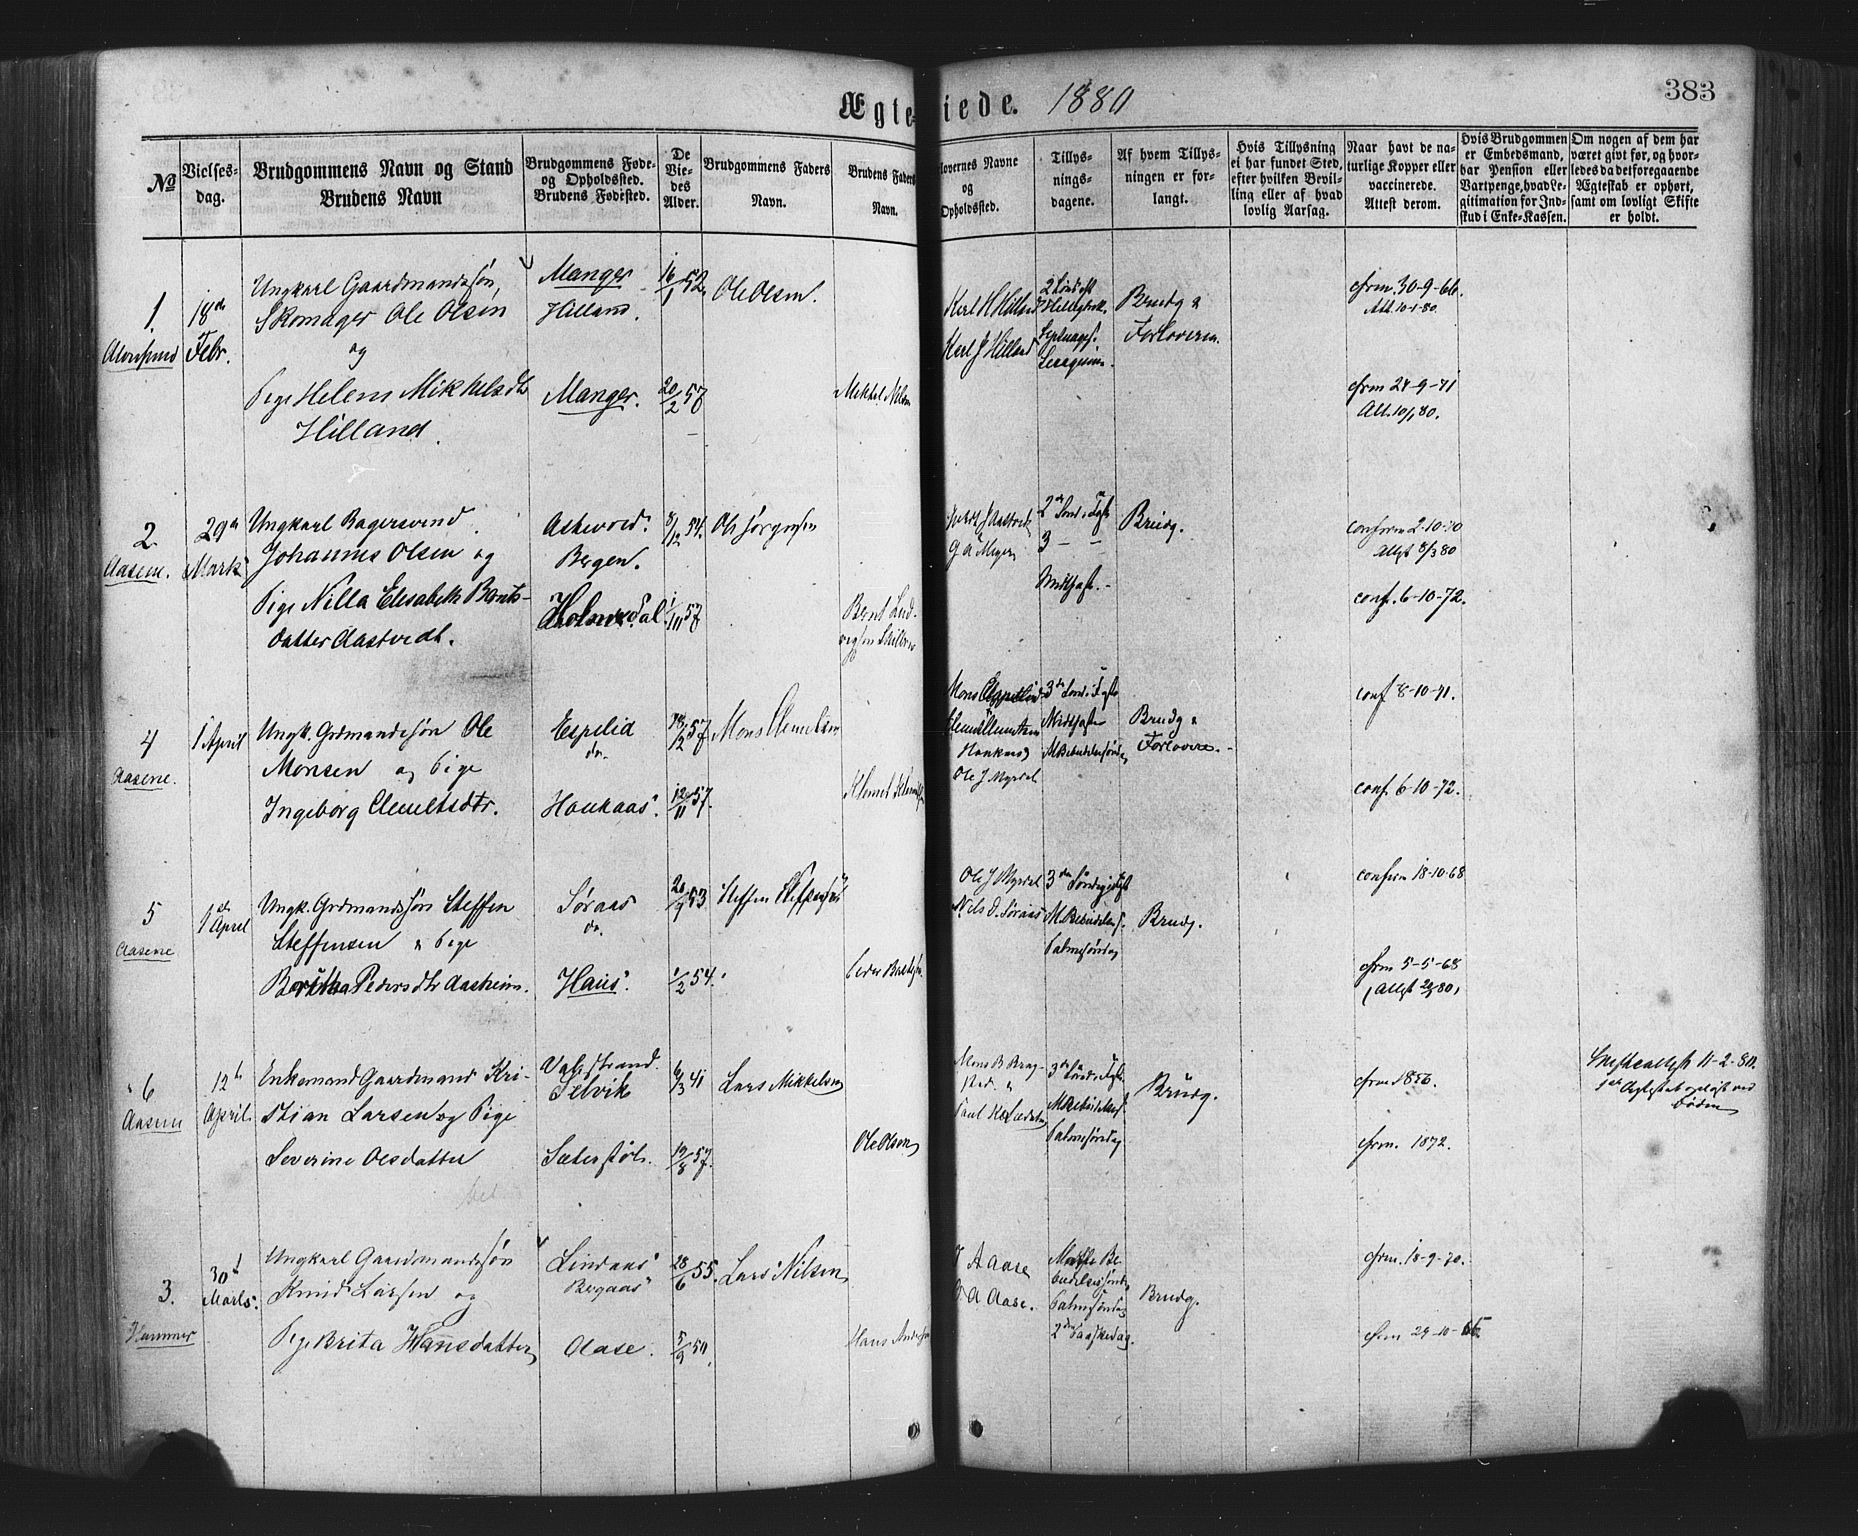 Ægte iede. 1880
383
No
Vielses-
dag.
Brudgommens Navn og Stand
Brudens Navn
Brudgommens Føde-
og Opholdssted.
Brudens Fødested.
De
Vie-
des
Alder.
Brudgommens Faders
Navn.
Brudens Faders
Navn.
lovernes Navne
og
Opholdssted.
Tillys-
nings-
dagene.
Af hvem Tillys-
ningen er for-
langt.
Hvis Tillysning
ei har fundet Sted,
efter hvilken Bevil-
ling eller af hvad
lovlig Aarsag.
Naar havt de na-
turlige Kopper eller
vaccinerede.
Attest derom.
Hvis Brudgommen
er Embedsmand,
har Pension eller
Vartpenge, hvad Le-
gitimation for Ind-
skud i Enke-Kassen.
Om nogen af dem har
været givt før, og hvor-
ledes da det foregaaende
Ægteskab er ophørt,
samt om lovligt Skifte
er holdt.
1.
18de
Febr.
Ungkarl Gaardmandssøn,
Skomager Ole Olsen
og
Pige Helene Mikkelsdtr
Hilland.
Manger
Hilland.
Manger.
16/1 52
20/2 57
Ole Olsen.
Mikkel Nilsen
Karl H Hilland
Karl J Hilland
Brudg &
Forloverne.
cfrm. 30-9-66.
Att. 10-1-80.
cfrm 24-9-71
Att. 10/1 80.
2
Aasene.
29de
Marts
Ungkarl Bagersvend
Johannes Olsen og
Pige Nilla Elisabeth Bernts-
datter Aastvedt.
Askevold.
Bergen.
Holmedal.
8/12 54.
1/10 57
Ole Jørgensen
Bernt Lud-
vigsen
G A Meyer
2den Sønd. i Faste
3 — —
Midtfaste. -
Brudg.
conferm 2-10-70
Attest 8/3 80
conf. 6-10-72.
4
Aasene.
1 April
Ungk. Grdmandssøn Ole
Monsen og Pige
Ingeborg Clemetsdtr.
Espelid
do.
Haukaas.
18/12 57
12/11 57.
Mons Clemetsen
Klemet
Mons Espelid
Haukaas
Ole J Myrdal
3die Sønd. i Faste
Midtfaste
M Bebudelsesdag
Brudg &
Forlovere. -
conf 8-10-71.
conf. 6-10-72.
5
Aasene
1ste April
Ungk. Grdmandssøn Steffen
Steffensen & Pige
Beritha Pedersdtr Aasheim.
Søraas
do.
Haus.
20/9 53
1/2 54.
Steffen Steffensen
Peder
Ole J Myrdal
Nils O. Søraas
3die Søndag i Faste
M. Bebudelsesd.
Palmesøndag
Brudg.
conferm 18-10-68
cfrm 5-5-68
(Attest 20/3 80)
6
Aasene
12te
April.
Enkemand Gaardmand Kri-
stian Larsen og Pige
Severine Olsdatter
Valestrand.
Selvik
Sæterstøl.
6/3 41
19/8 57.
Lars Mikkelsen
Ole Olsen
3die Sønd. i Faste
M Bebudelsesd.
Palmesøndag
Brudg.
cfrm 1856.
cfrm. 1872.
Skifteattest 11-2-80.
1ste Ægteskab opløst ved
Døden
3.
Hammer
30te
Marts.
Ungkarl Gaardmandssøn
Knud Larsen og
Pige Brita Hansdatter
Lindaas
Bergaas
Aase.
28/6 55.
5/9 50.
Lars Nilsen
Hans Anders
A Aase
A Aase.
Mariæ Be-
budelsessøndag
Palmesøndag
2den Paaskedag.
Brudg.
cfrm. 18-9-70.
cfrm 29-10-65.